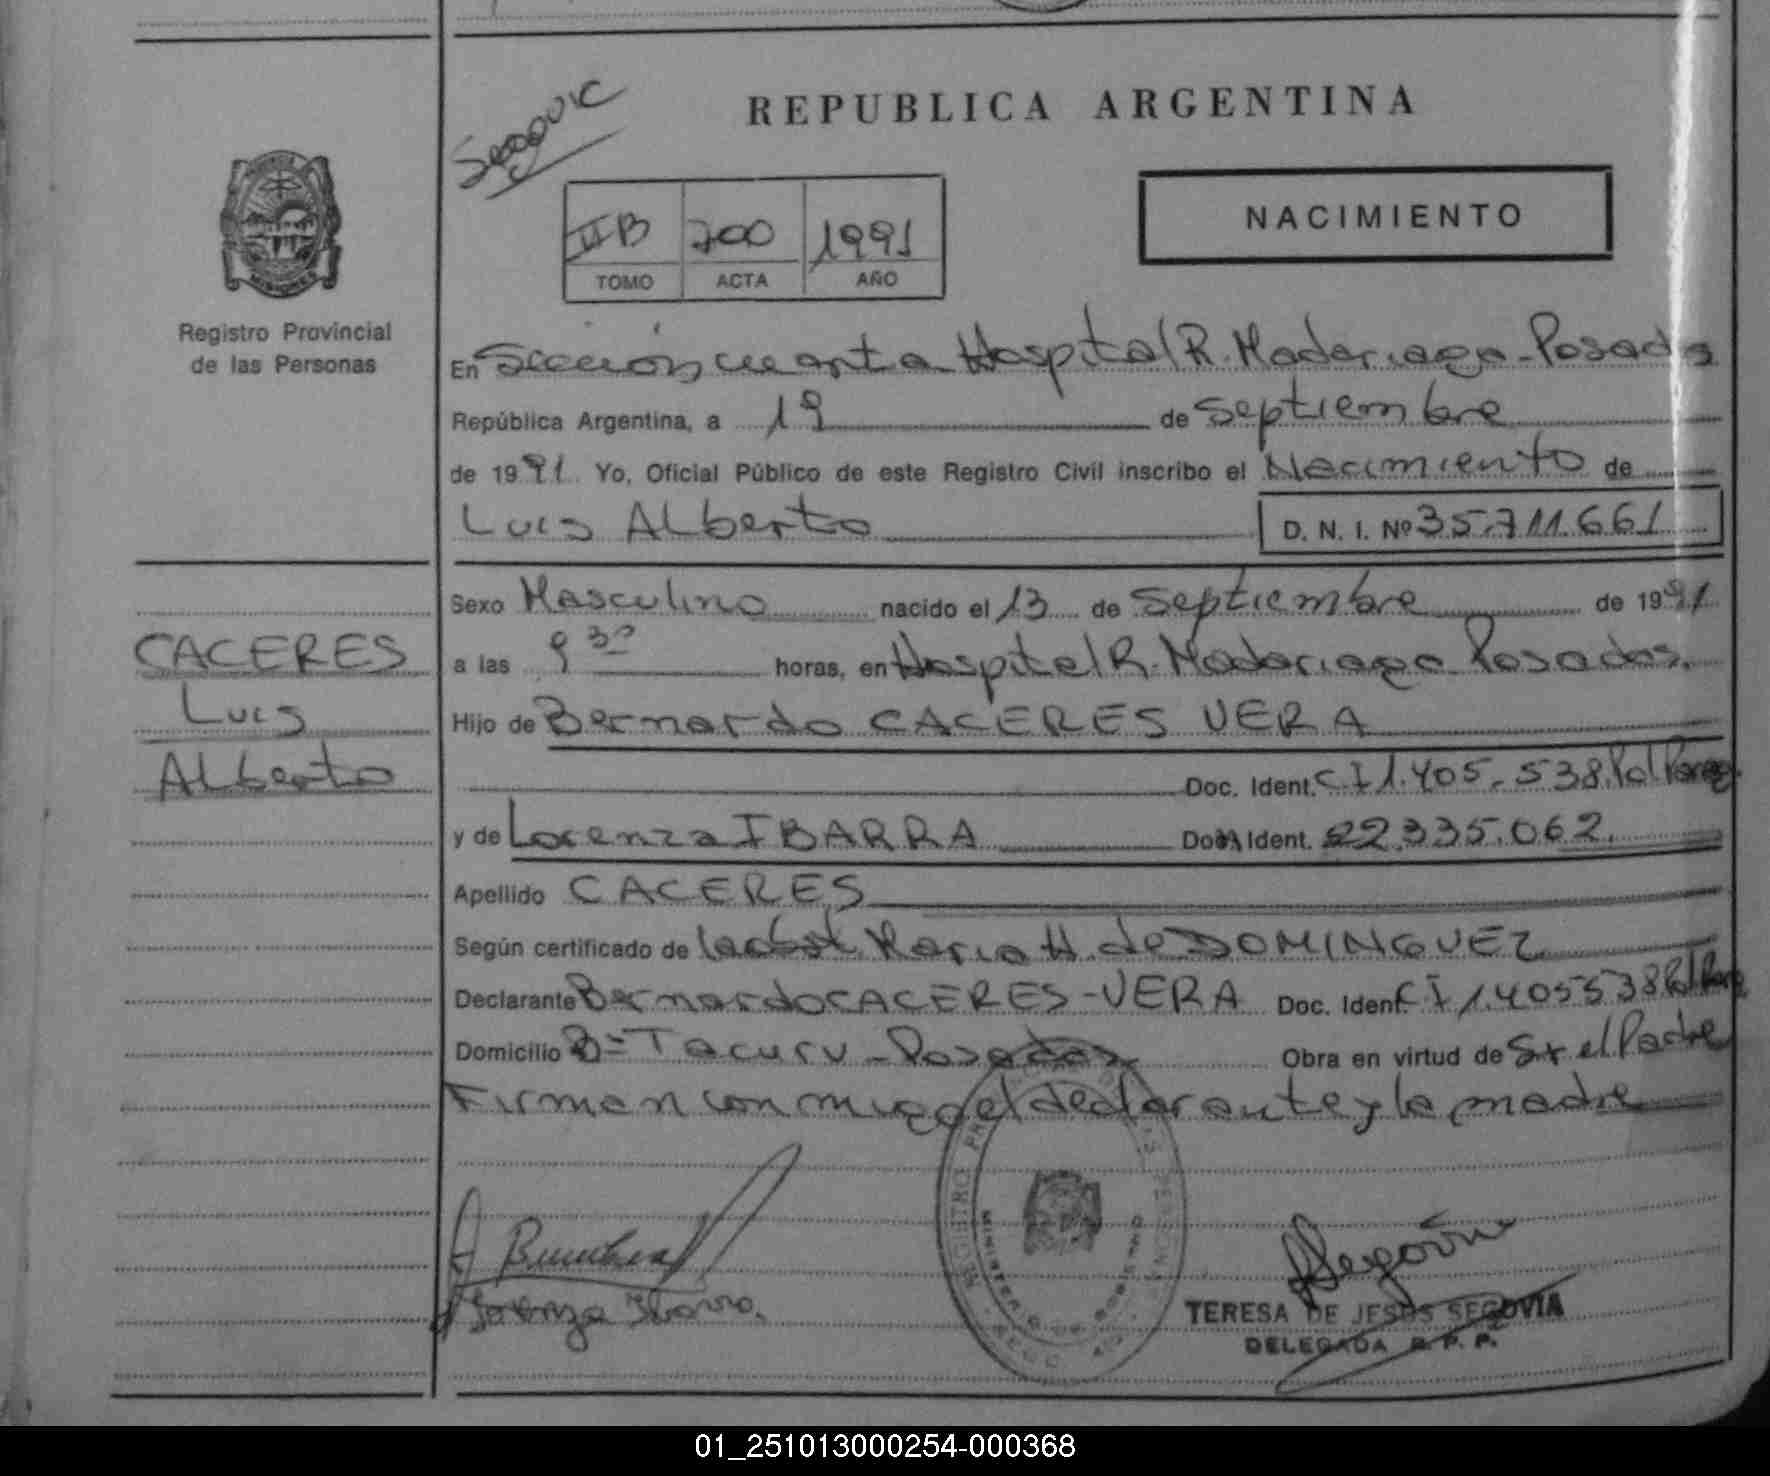 REPUBLICA ARGENTINA
NACIMIENTO
II B 700 1991
TOMO ACTA AÑO
MISIONES
Registro Provincial
de las Personas
En Sección cuarta Hospital R. Madariaga - Posadas
República Argentina, a 19 de Septiembre
de 1991 Yo, Oficial Público de este Registro Civil inscribo el Nacimiento de
Luis Alberto D. N. I. Nº 35.711.661
Sexo Masculino nacido el 13 de Septiembre de 1991
CACERES
Luis
Alberto
a las 9 30 horas, en Hospital R. Madariaga Posadas.
Hijo de Bernardo CACERES VERA
Doc. Ident. C I 1.405.538. Pol
y de Lorenza IBARRA Ident. 22.335.062.
Apellido CACERES
Según certificado de la obst. Maria H. de DOMINGUEZ
Declarante Bernardo CACERES - VERA Doc. Ident. C I 1.405538 Pol
Domicilio Bº Tacuru - Posadas Obra en virtud de Ser el Padre
Firman conmigo el declarante y la madre
Lorenza Ibarra.
Segovia
TERESA DE JESUS SEGOVIA
DELEGADA R. P. P.
MINISTERIO DE GOBIERNO
01_251013000254-000368